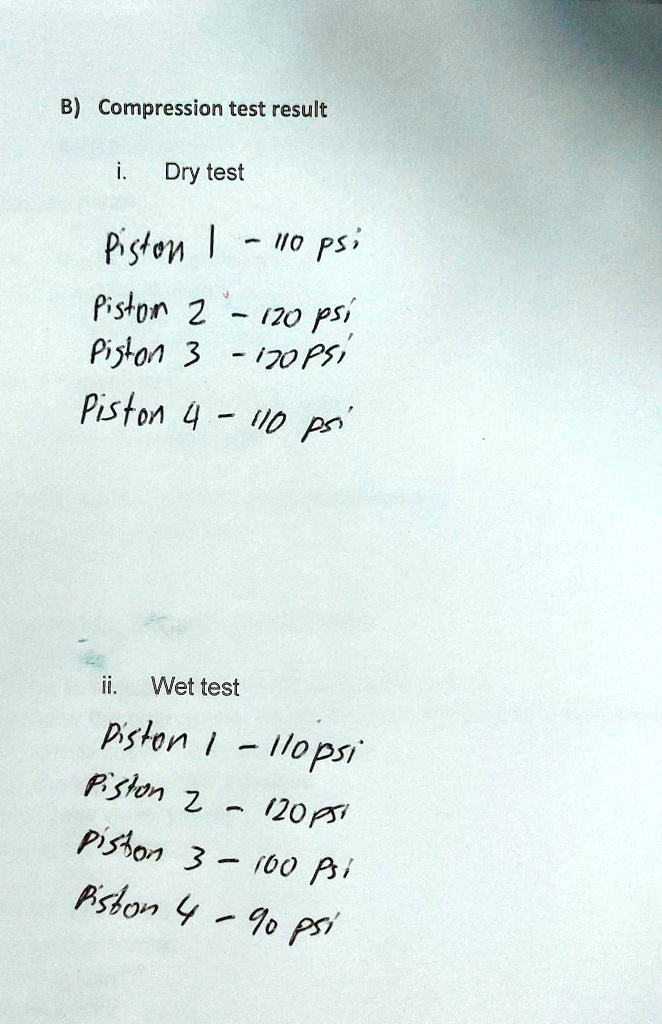 B) Compression test result
i. Dry test
Piston 1 - 110 psi
Piston 2 - 120 psi
Piston 3 - 120 psi
Piston 4 - 110 psi
ii. Wet test
Piston 1 - 110 psi
Piston 2 - 120 psi
Piston 3 - 100 psi
Piston 4 - 90 psi